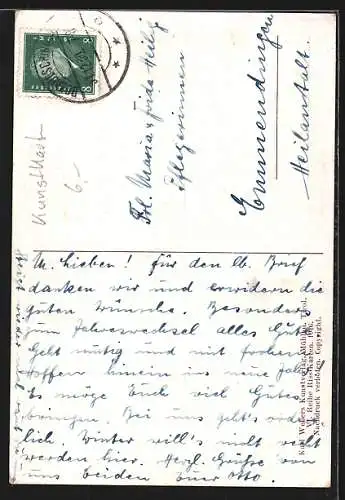 8 8
Kunstkart
6.-
Frl. Maria & Frida Heilig
Pflegerinnen
Emmendingen
Heilanstalt.
M. Lieben! Für den lb. Brief
danken wir und erwidern die
guten Wünsche. Besonders
zum Jahreswechsel alles Gute
Geht mutig und mit frohem
Hoffen hinein ins neue Jahr
Es möge Euch viel Gutes
bringen. Bei uns geht's ordent
lich. Winter will's nicht recht
werden hier. Herzl. Grüsse von
uns beiden Euer Otto.
Karl Webers Kunstverlag, Mühlau, Tirol.
VI. Reihe Hirschkarten.
Nachdruck verboten. Copyright.